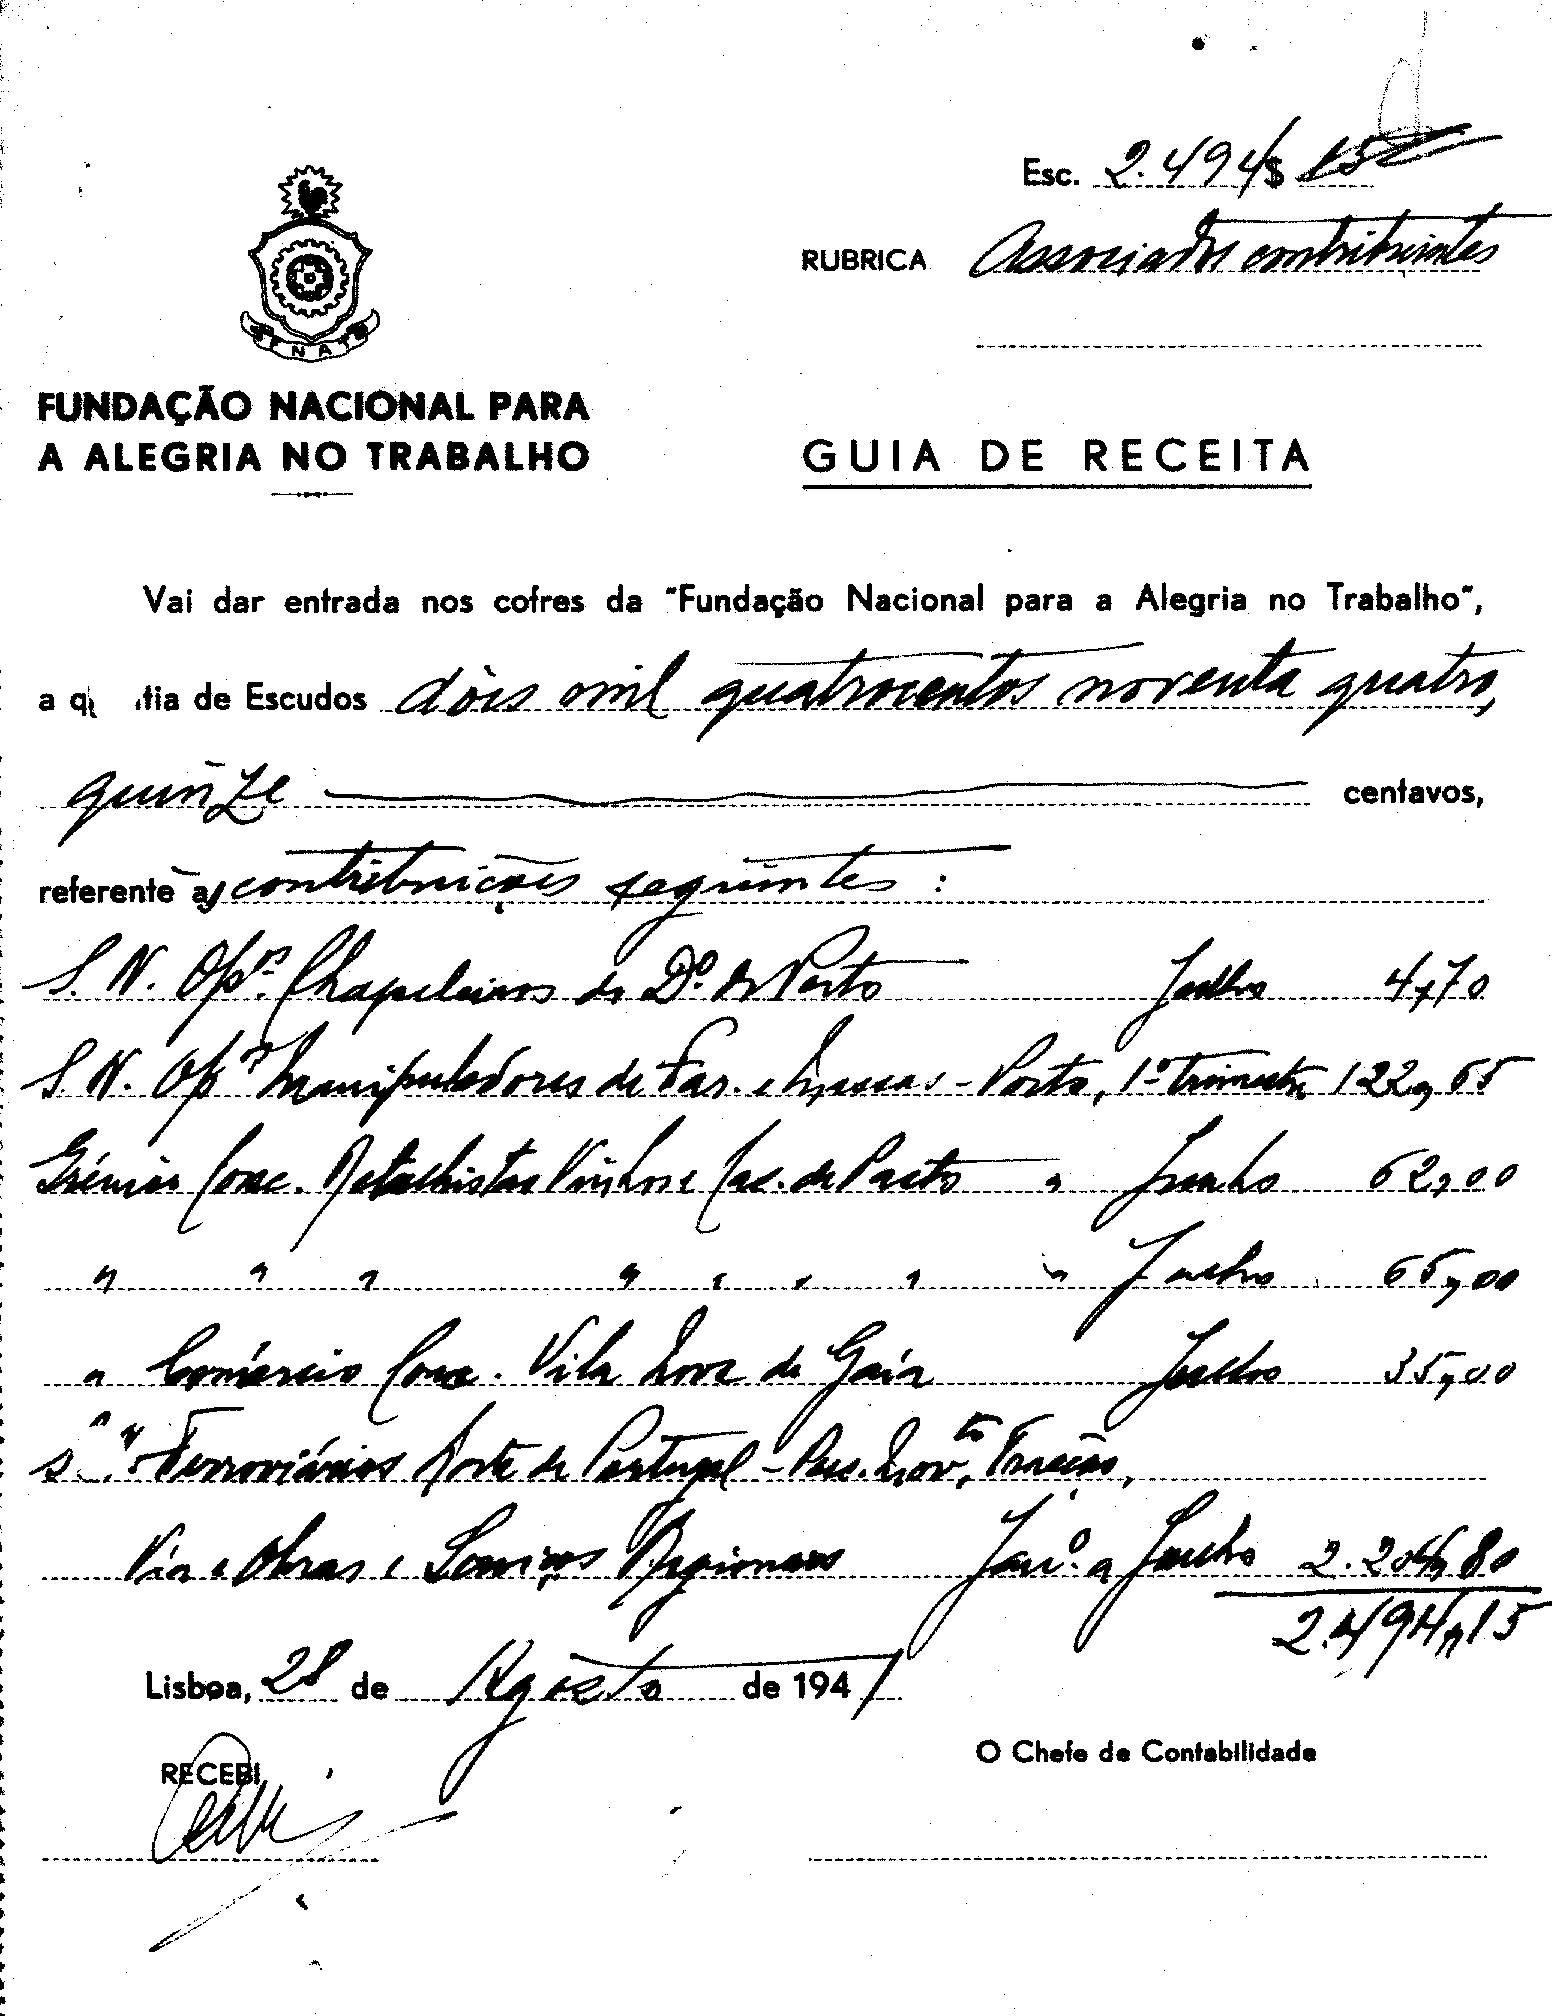 Esc. 2.494$15
RUBRICA Associados contribuintes
FNAT
FUNDAÇÃO NACIONAL PARA
A ALEGRIA NO TRABALHO
GUIA DE RECEITA
Vai dar entrada nos cofres da "Fundação Nacional para a Alegria no Trabalho",
a q tia de Escudos dois mil quatrocentos noventa quatro,
quinze centavos,
referente as contribuições seguintes :
S. N. Opºs. Chapeleiros do Dº. do Porto Julho 4,70
S. N. Opºs Manipuladores de Far. e Massas - Porto, 1º trimestre 122,65
Grémio Conc. Retalhistas Vinhos e Cas. de Pasto " Junho 62,00
" " " " " " " " Julho 65,00
" Comércio Conc. Vila Nova de Gaia Julho 35,00
S. " " Ferroviários Norte de Portugal - Mov.to, Tracção,
Via e Obras e Serviços Regionais Janº. a Junho 2.204,80
2.494,15
Lisboa, 28 de Agosto de 1941
RECEBI
O Chefe de Contabilidade